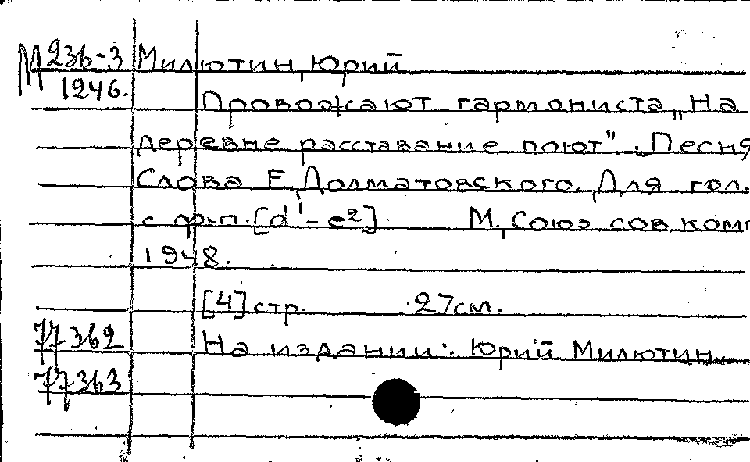 М 236-3 Милютин, Юрий
1246.
Провожают гармониста „На
деревне расставание поют". Песня
Слова Е. Долматовского. Для гол.
с ф-п. [d¹-e²] М., Союз сов. комп
1948.
[4] стр. 27см.
77362 На издании: Юрий Милютин.
77363